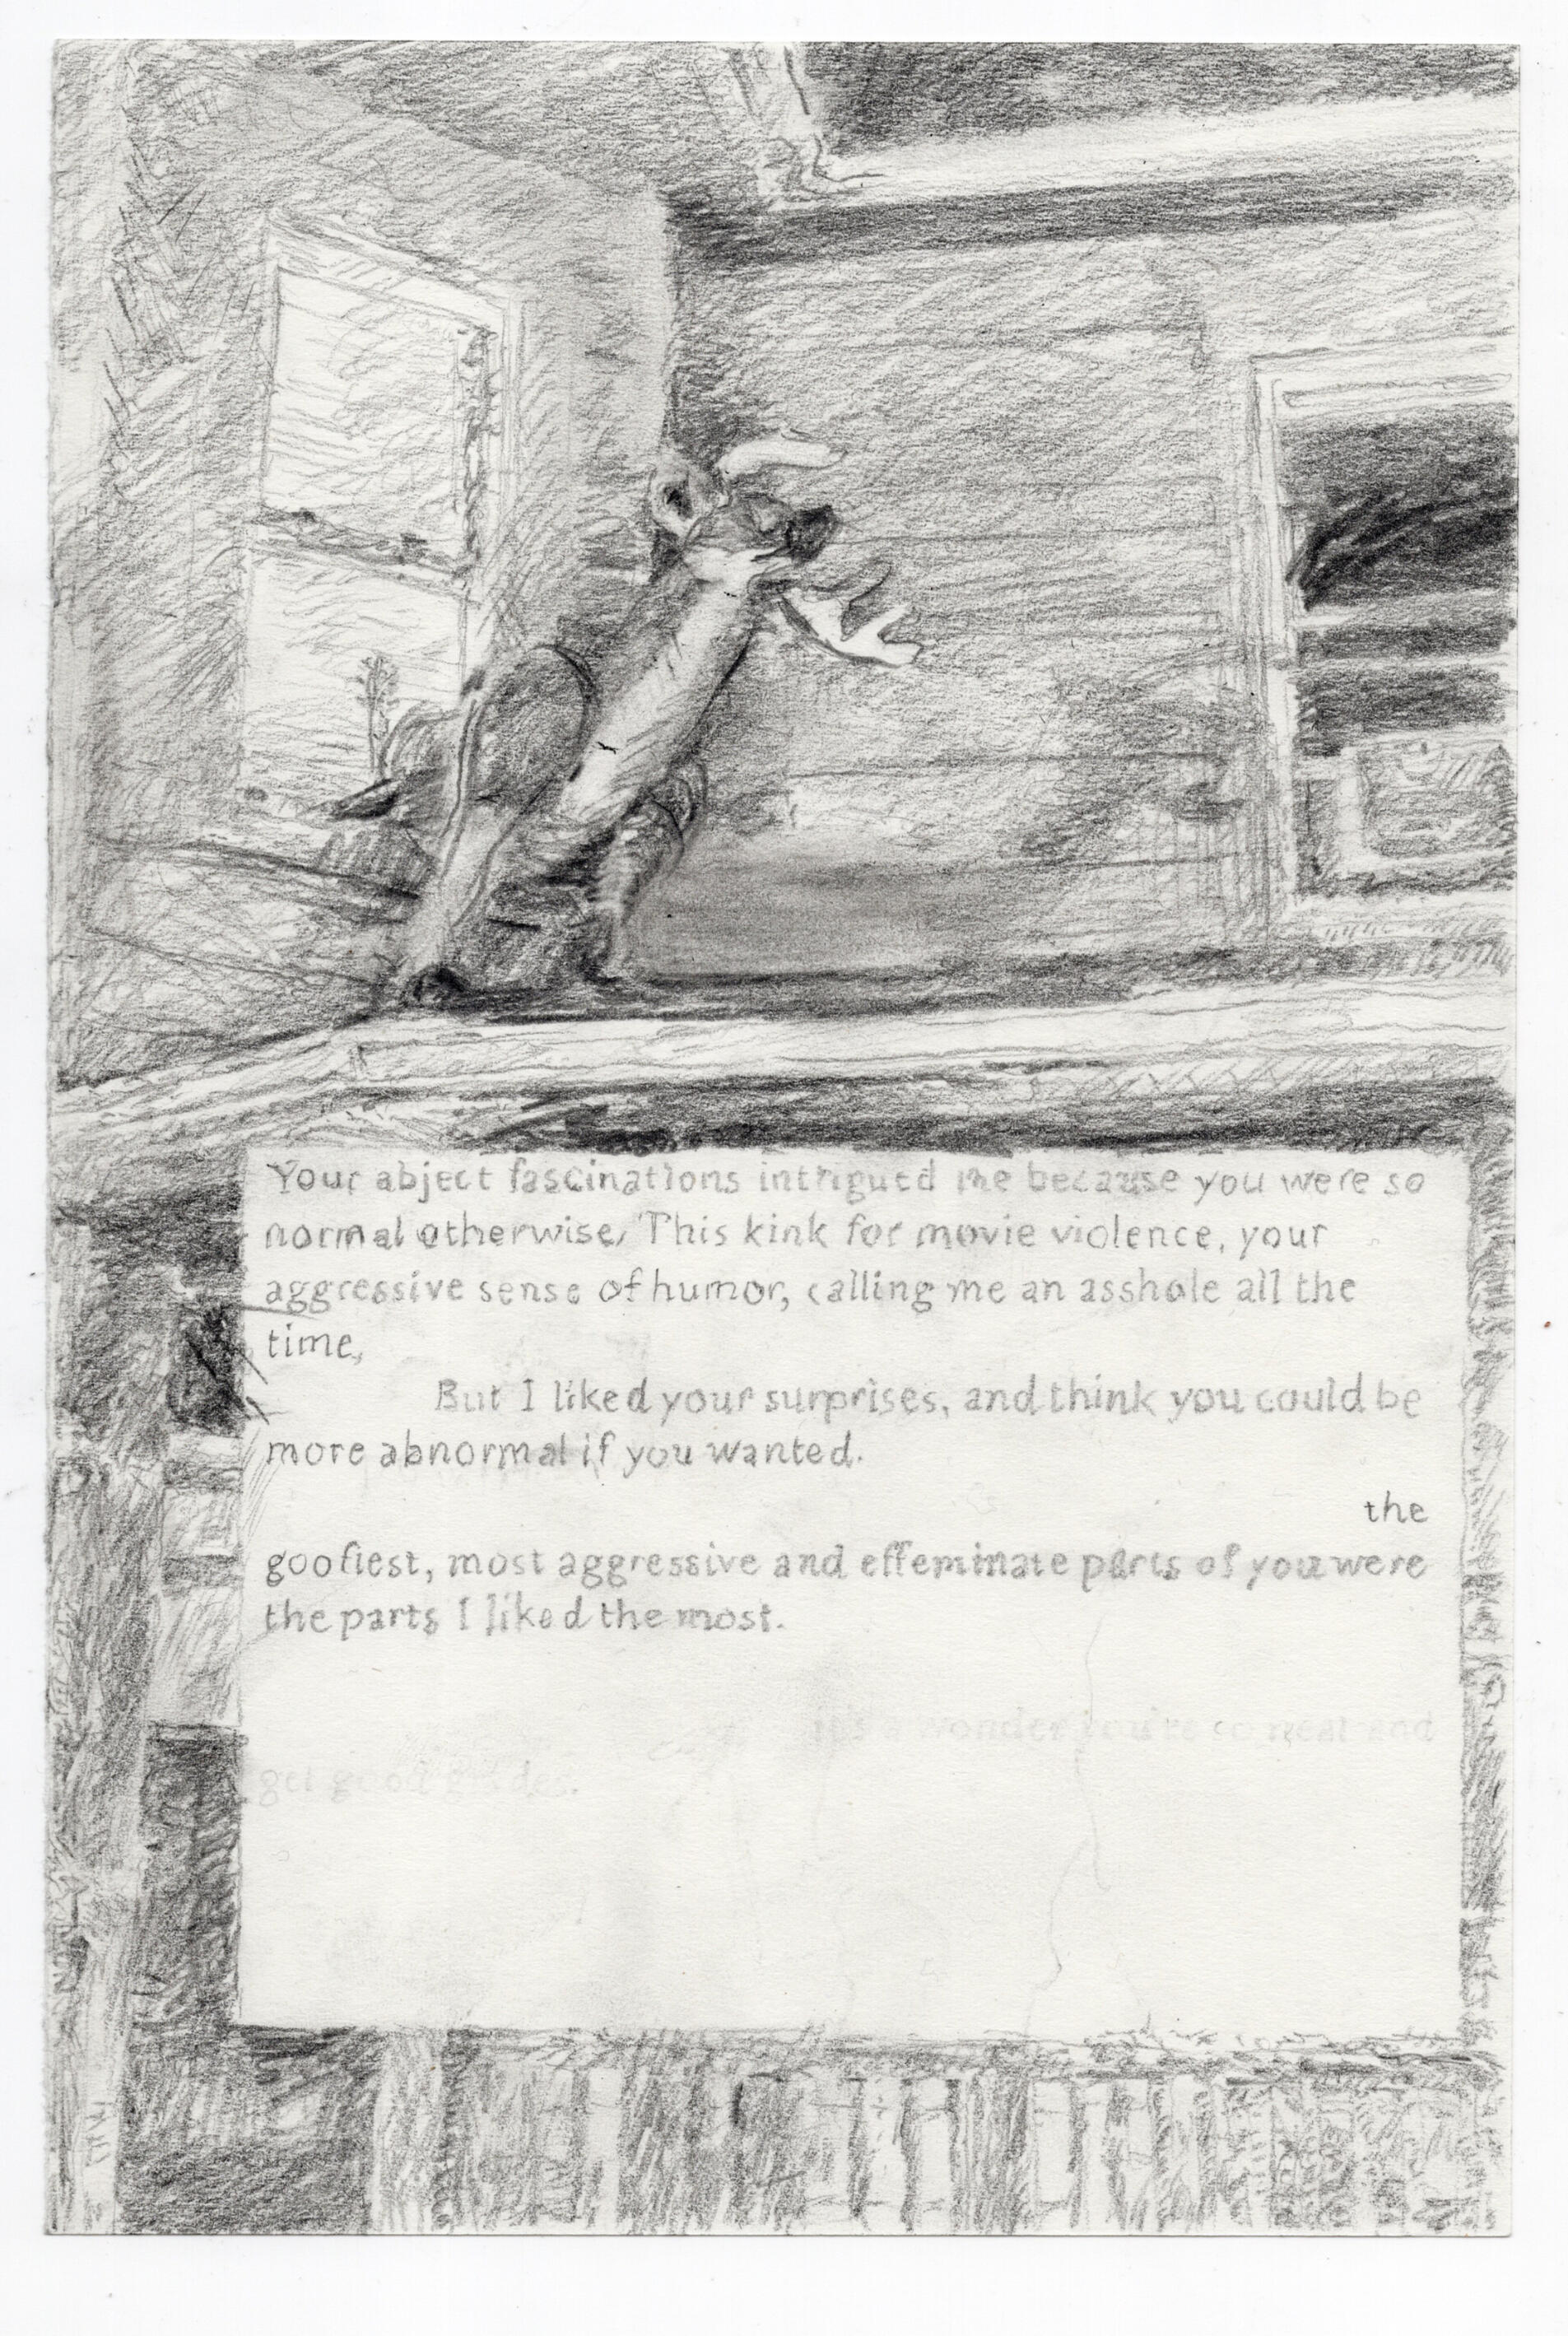 Your abject fascinations intrigued me because you were so
normal otherwise, This kink for movie violence, your
aggressive sense of humor, calling me an asshole all the
time,
But I liked your surprises, and think you could be
more abnormal if you wanted.
the
goofiest, most aggressive and effeminate parts of you were
the parts I liked the most.
wonder you're so neat and
get good grades.